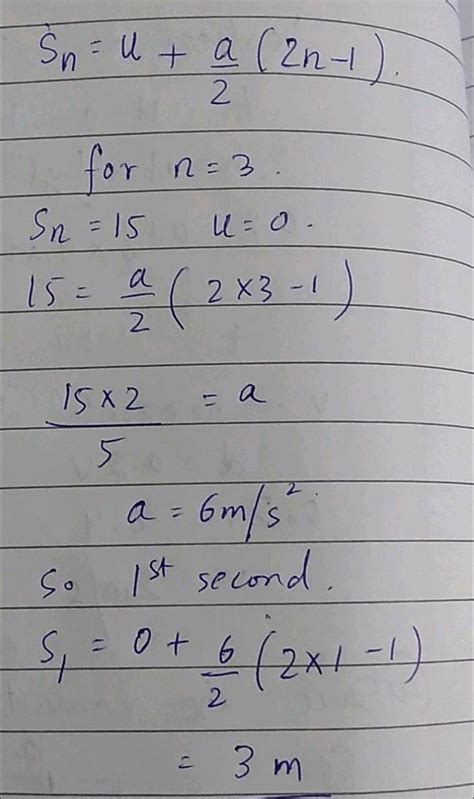 Sn = u + a/2 (2n-1).
for n = 3.
Sn = 15 u = 0.
15 = a/2 (2×3-1)
15×2/5 = a
a = 6m/s²
So 1st second.
S₁ = 0 + 6/2 (2×1-1)
= 3 m